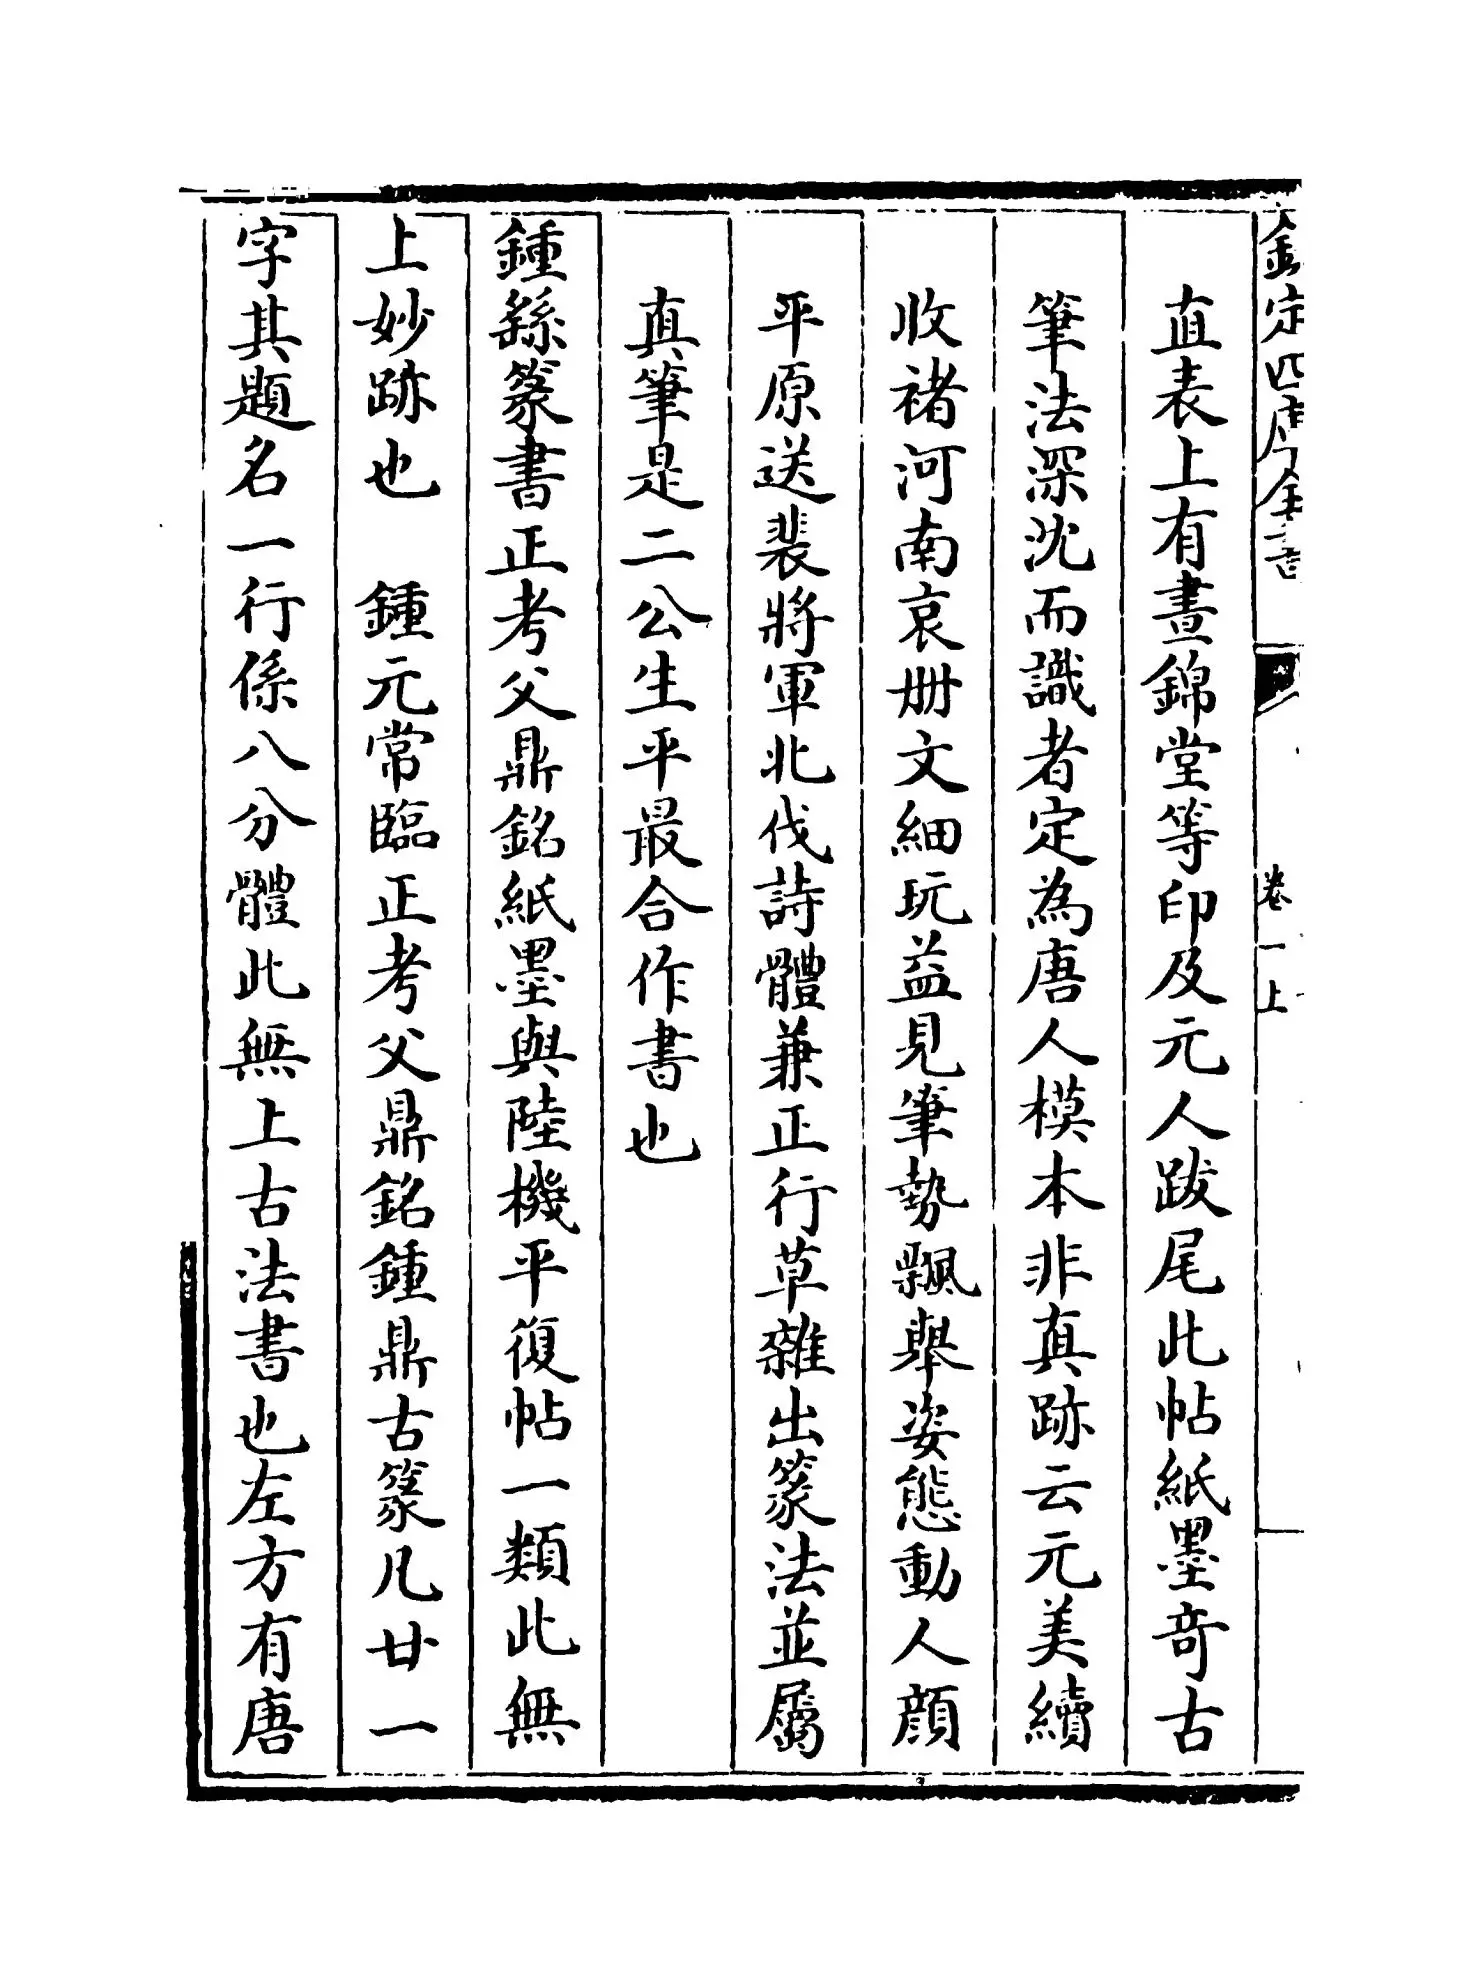 欽定四庫全書
卷一上
直表上有晝錦堂等印及元人跋尾此帖紙墨竒古
筆法深沈而識者定為唐人模本非真跡云元美續
收禇河南哀册文細玩益見筆勢飄舉姿態動人顔
平原送裴將軍北伐詩體兼正行草雜出篆法並屬
真筆是二公生平最合作書也
鍾繇篆書正考父鼎銘紙墨與陸機平復帖一類此無
上妙跡也　鍾元常臨正考父鼎銘鍾鼎古篆凡廿一
字其題名一行係八分體此無上古法書也左方有唐